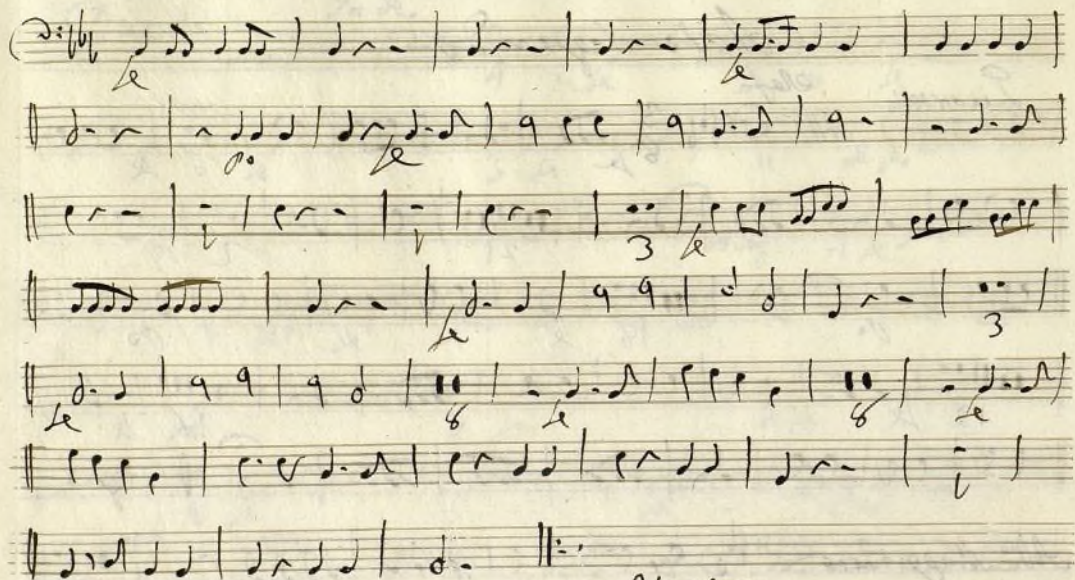 fe fe
po fe
1 1 3 fe
fe 3
fe 8 fe 8 fe
1